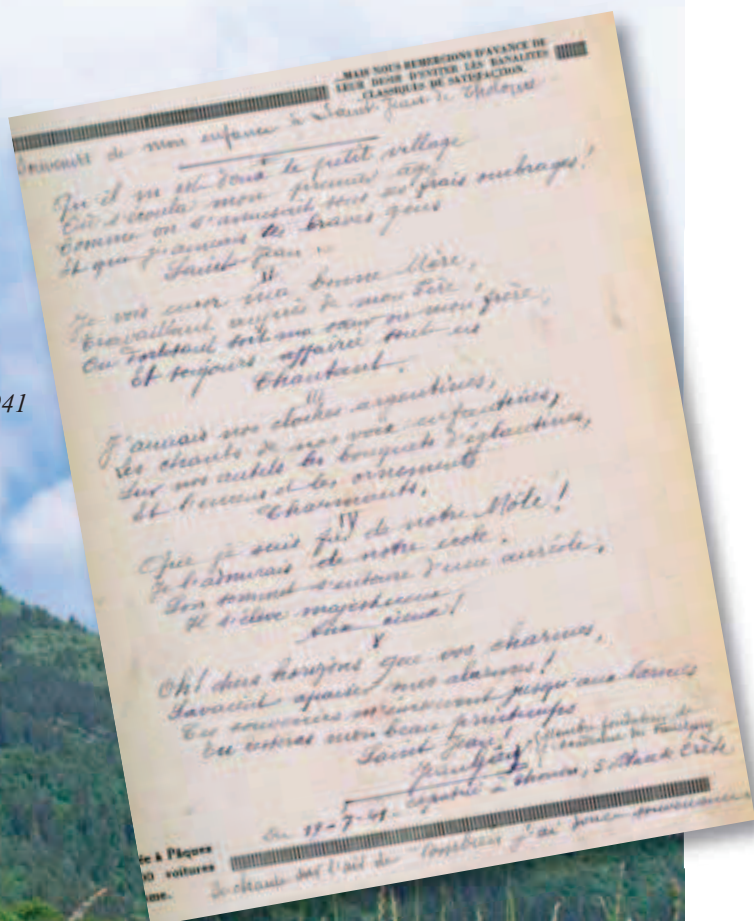 MAIS NOUS REMERCIONS D'AVANCE DE
LEUR DESIR D'EVITER LES BANALITES
CLASSIQUES DE SATISFACTION.
Souvenirs de mon enfance à Saint Jean de Tholome
Qu'il m'est doux le petit village
Où s'écoula mon premier âge
Comme on s'amusait sous ses frais ombrages!
Et que j'aimais les braves gens
Saint Jean.
II
Je vois encor ma bonne Mère,
Travaillant auprès de mon Père!
Ou dorlotant soit ma sœur ou mon frère,
Et toujours affairée tout en
Chantant.
III
J'aimais nos cloches argentines,
Les chants de nos voix enfantines,
Sur nos autels les bouquets d'églantines,
Et l'encens et les ornements
Charmants.
IV
Que je suis fier de notre Môle!
Je l'admirais de notre école.
Son sommet s'entoure d'une auréole,
Il s'élève majestueux
Aux cieux!
V
Oh! chers horizons que vos charmes,
Savaient apaiser mes alarmes!
Ces souvenirs m'émeuvent jusqu'aux larmes
Tu resteras mon beau printemps
Saint Jean!
41
Du 19-7-41
Se chante sur l'air de "Combien j'ai douce souvenance
ée à Pâques
00 voitures
me.